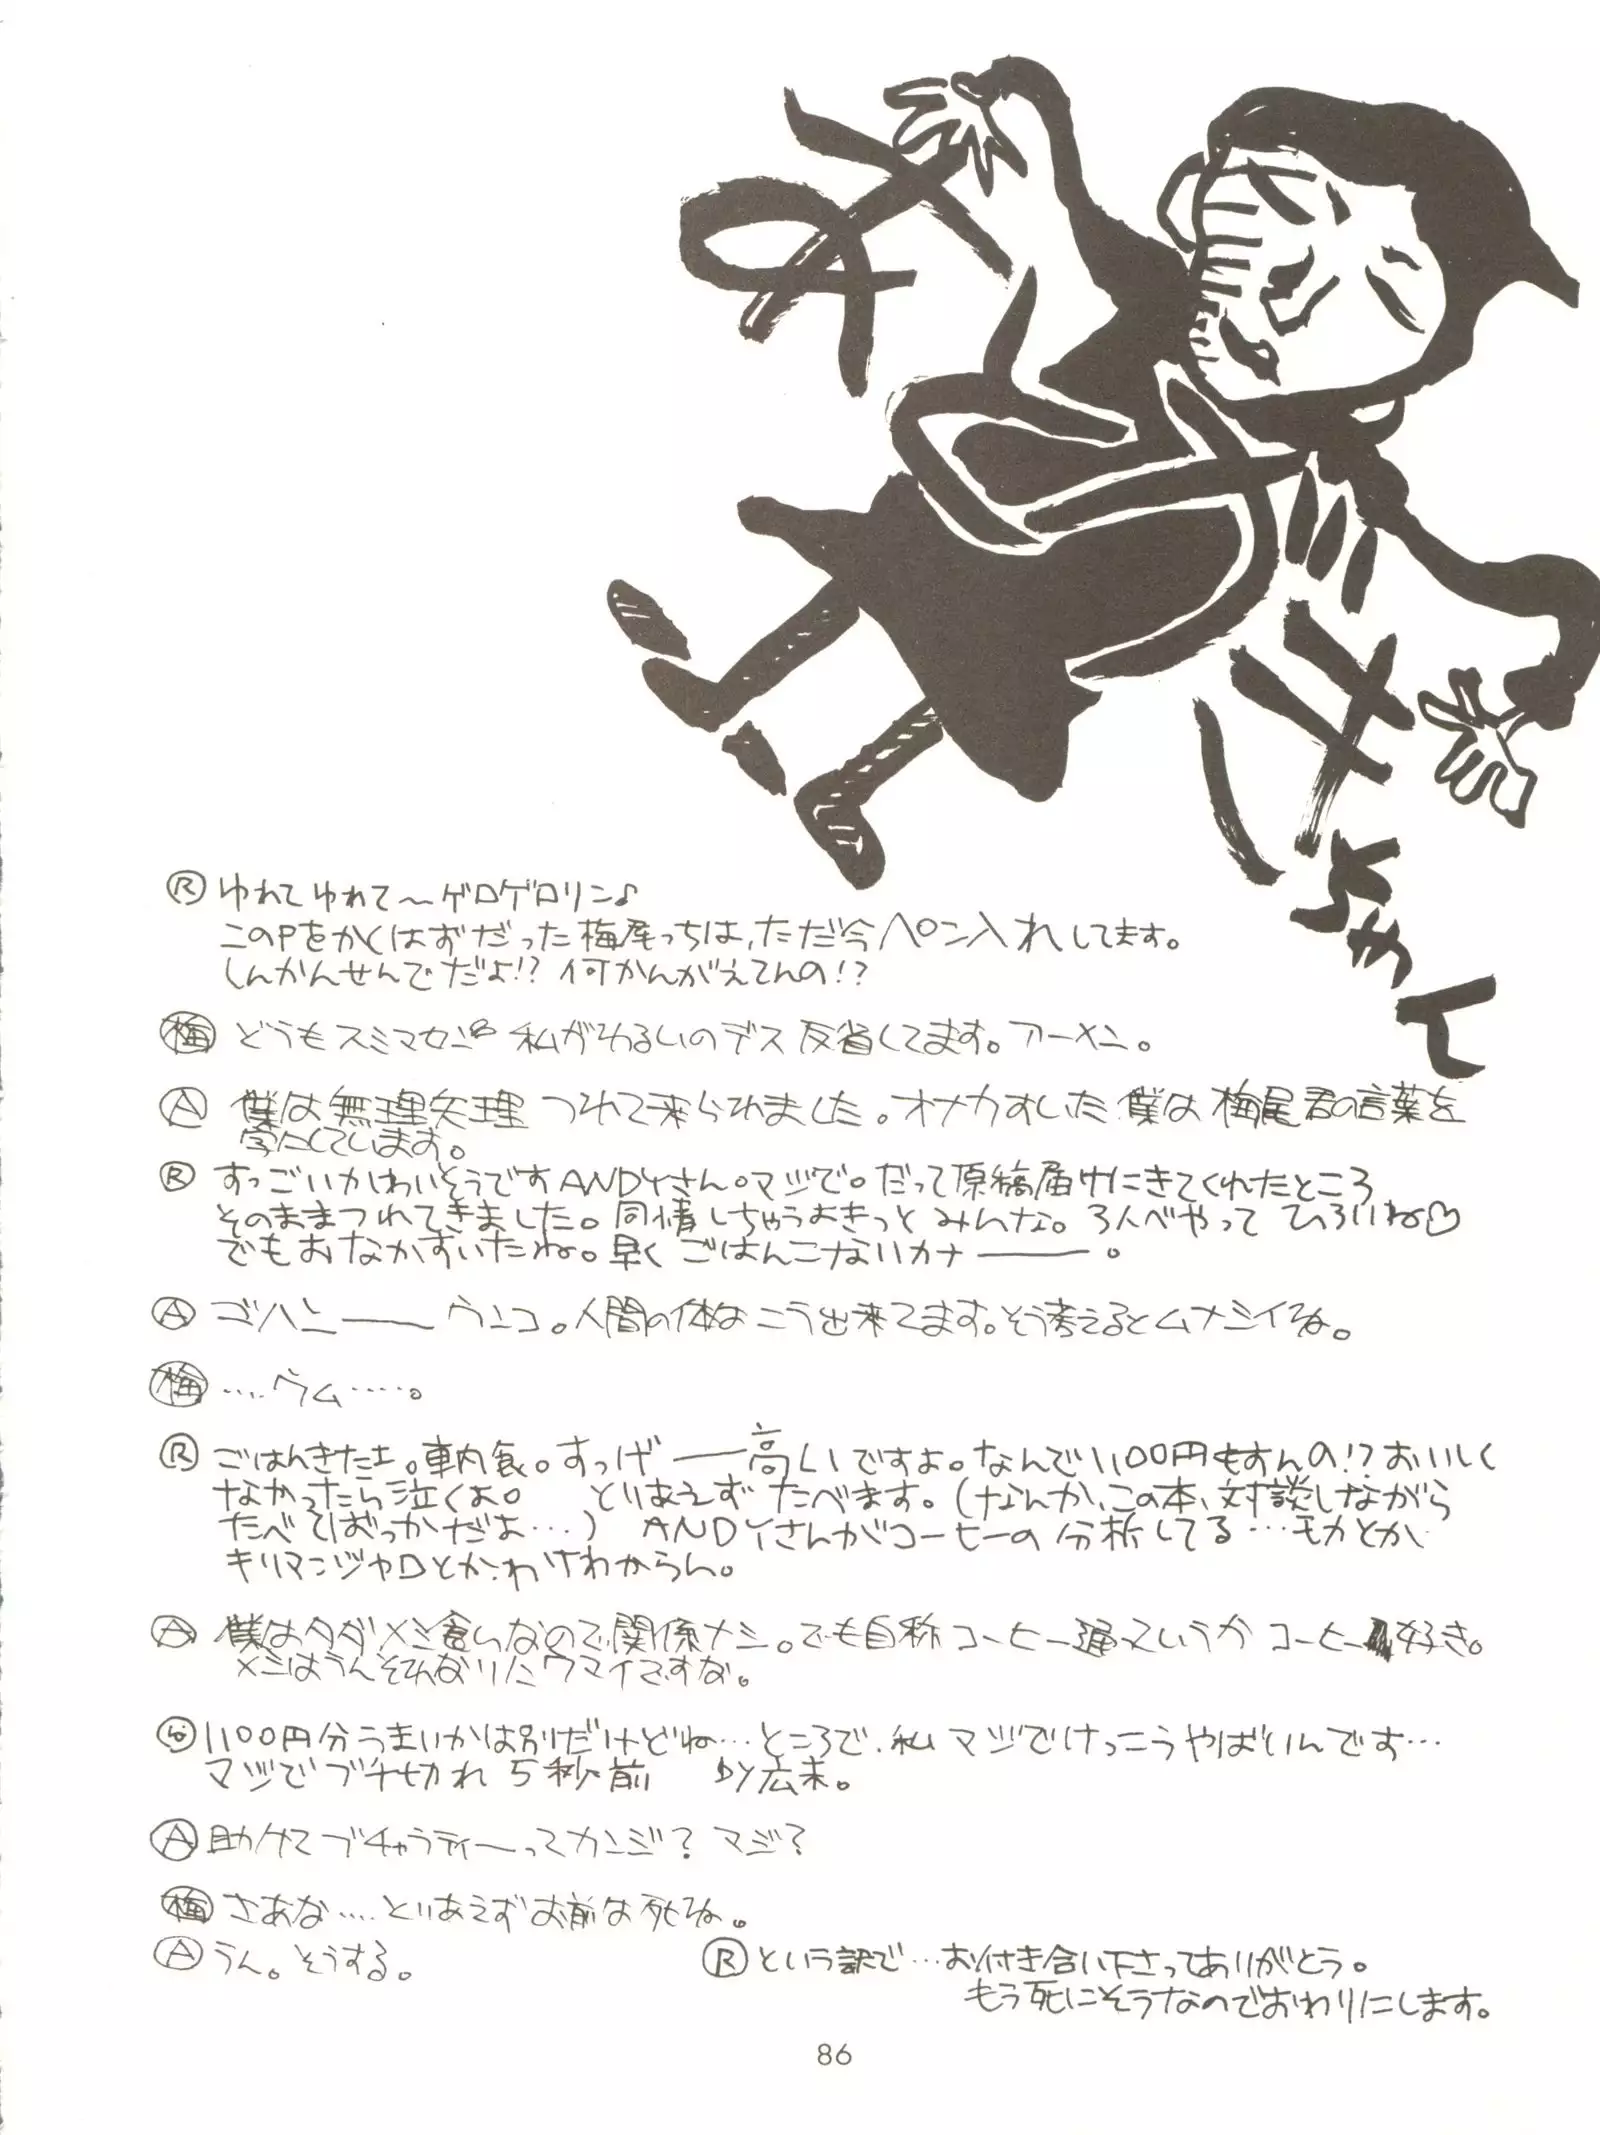 Ⓡ ゆれてゆれて〜ゲロゲロリン♪
このPをかくはずだった梅尾っちは、ただ今ペン入れしてます。
しんかんせんでだよ!? 何かんがえてんの!?
㊗梅 どうもスミマセン 私がわるいのデス 反省してます。アーメン。
Ⓐ 僕は無理矢理つれて来られました。オナカすした僕は梅尾君の言葉を
写たくしています。
Ⓡ すっごいかわいそうですANDYさん。マジで。だって原稿届けにきてくれたところ
そのままつれてきました。同情しちゃうよきっとみんな。3人べやってひろいね♡
でもおなかすいたね。早くごはんこないカナ――。
Ⓐ ゴハン――ウンコ。人間の体はこう出来てます。そう考えるとムナシイね。
梅 ‥‥ウム‥‥‥。
Ⓡ ごはんきたェ。車内食。すっげ――高いですよ。なんで1100円もすんの!? おいしく
なかったら泣くよ。 とりあえずたべます。(なんか、この本、対談しながら
たべてばっかだよ…) ANDYさんがコーヒーの分析してる…モカとか
キリマンジャロとか、わけわからん。
Ⓐ 僕はタダメシ食らいなので関係ナシ。でも自称コーヒー通っていうかコーヒー好き。
メシはうんそれなりにウマイですな。
1100円分うまいかは別だけどね…ところで、私マジでけっこうやばいんです…
マジでブチ切れ5秒前 by広末。
Ⓐ 助けてブチャラティーってカンジ? マジ?
梅 さあな‥‥とりあえずお前は死ね。
Ⓐ うん。そうする。
Ⓡ という訳で…お付き合い下さってありがとう。
もう死にそうなのでおわりにします。
86